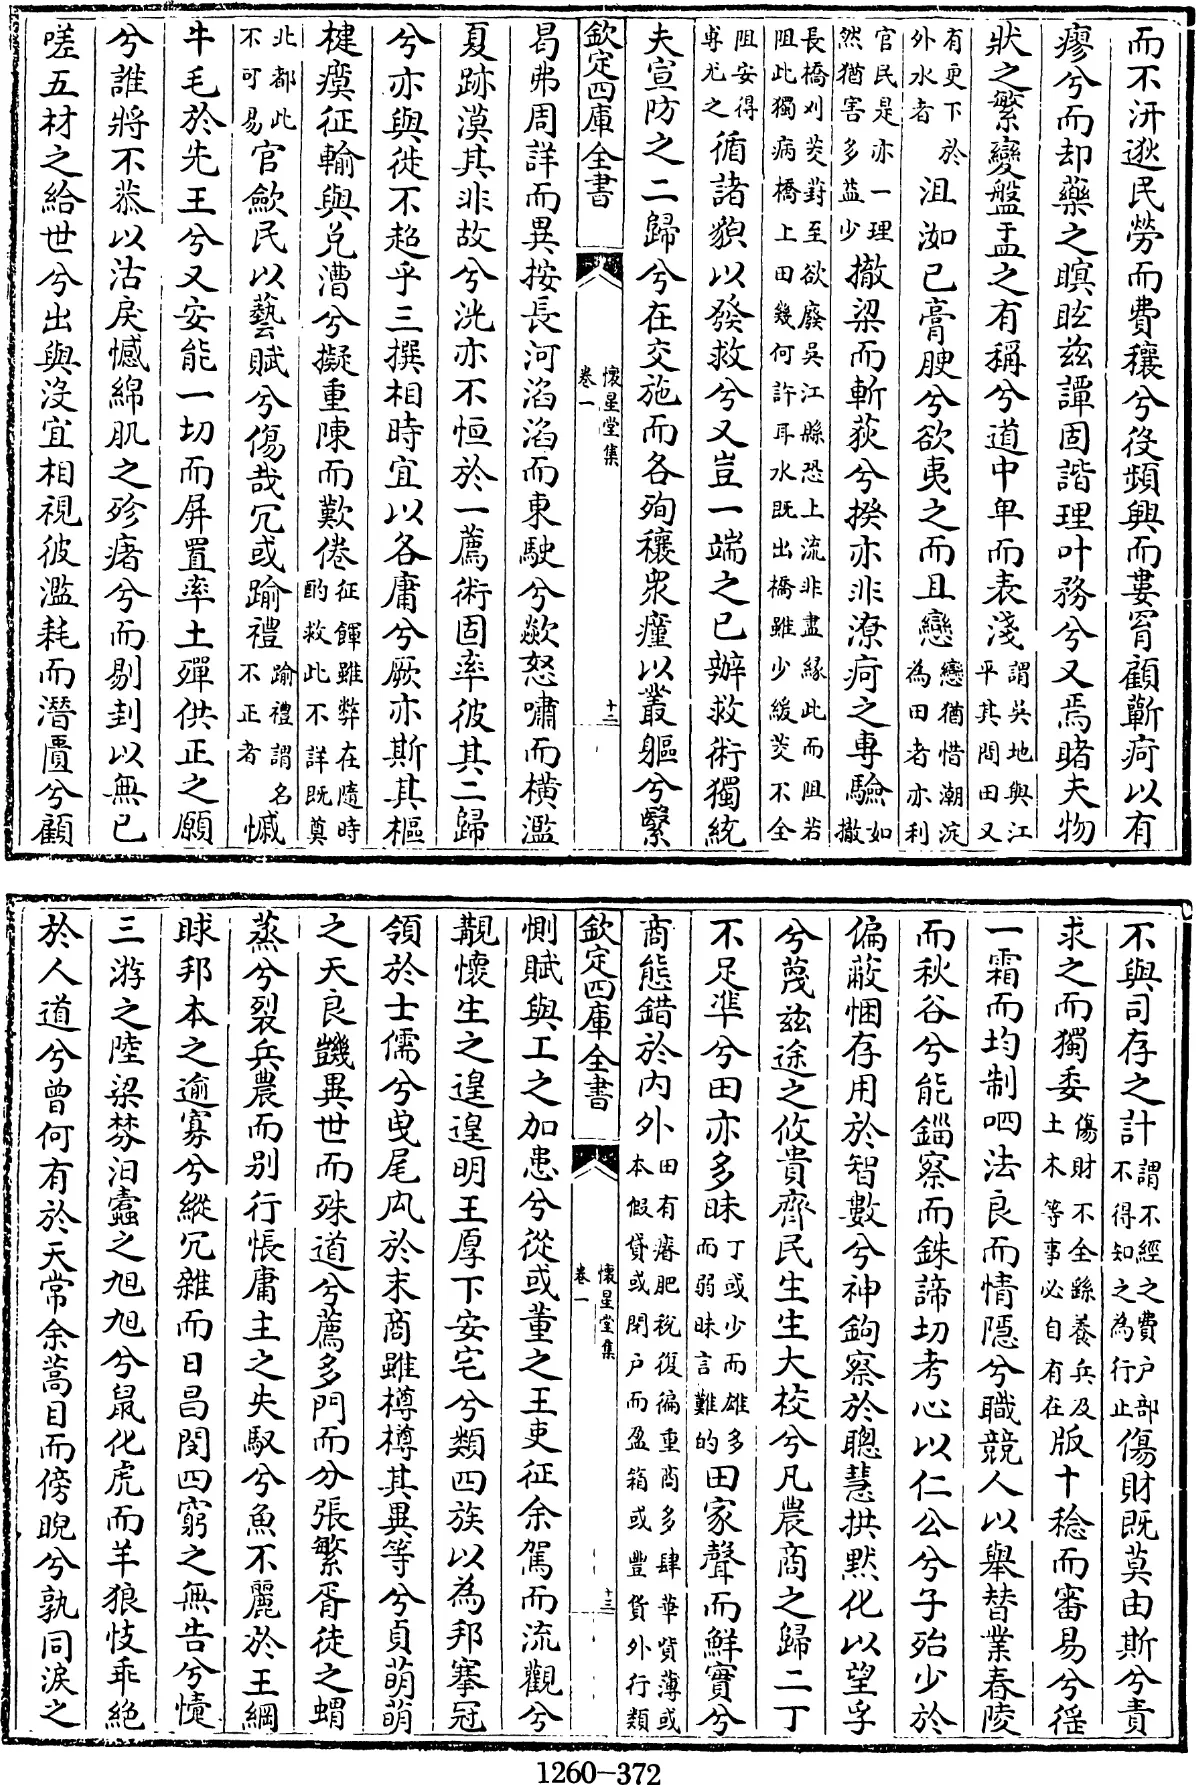 而不汧逖民勞而費穰兮役頻興而婁窅顧蘄疴以有
瘳兮而却藥之瞑眩兹譚固諧理叶務兮又焉睹夫物
狀之繁變盤盂之有稱兮道中卑而表淺謂吳地與江平其間田又
有更下於外水者沮洳已膏腴兮欲夷之而且戀戀猶惜潮淀為田者亦利
官民是亦一理然猶害多益少撤梁而斬荻兮揆亦非潦疴之專驗如撤
長橋刈茭葑至欲廢吳江縣恐上流非盡緣此而阻若阻此獨病橋上田幾何許耳水既出橋雖少緩茭不全
阻安得專尤之循諸貌以發救兮又豈一端之已辦救術獨統
夫宣防之二歸兮在交施而各殉穰衆瘽以叢軀兮繄
欽定四庫全書
懷星堂集
卷一
十二
曷弗周詳而異按長河滔滔而東駛兮歘怒嘯而橫濫
夏跡漠其非故兮洸亦不恒於一薦術固率彼其二歸
兮亦與徙不超乎三撰相時宜以各庸兮厥亦斯其樞
楗瘼征輸與兌漕兮擬重陳而歎倦征餫雖弊在隨時酌救此不詳既奠
北都此不可易官歛民以藝賦兮傷哉冗或踰禮踰禮謂名不正者慽
牛毛於先王兮又安能一切而屏置率土殫供正之願
兮誰將不恭以沽戾憾綿肌之殄瘏兮而剔刲以無已
嗟五材之給世兮出與沒宜相視彼濫耗而潛匱兮顧
不與司存之計謂不經之費户部不得知之為行止傷財既莫由斯兮責
求之而獨委傷財不全繇養兵及土木等事必自有在版十稔而審易兮徭
一霜而均制呬法良而情隱兮職競人以舉替業春陵
而秋谷兮能錙察而銖諦切考心以仁公兮子殆少於
偏蔽悃存用於智數兮神鉤察於聰慧拱默化以望孚
兮蔑兹途之攸貴齊民生生大校兮凡農商之歸二丁
不足準兮田亦多昧丁或少而雄多而弱昧言難的田家聲而鮮實兮
商態錯於內外田有瘠肥税復徧重商多肆華貲薄或本假貸或閉户而盈箱或豐貨外行類
欽定四庫全書
懷星堂集
卷一
十三
惻賦與工之加患兮從或董之王吏征余駕而流觀兮
覯懷生之遑遑明王厚下安宅兮類四族以為邦搴冠
領於士儒兮曳尾凥於末商雖樽樽其異等兮貞萌萌
之天良豑異世而殊道兮薦多門而分張繁胥徒之蝟
蒸兮裂兵農而别行悵庸主之失馭兮魚不麗於王綱
眽邦本之逾寡兮縱冗雜而日昌閔四窮之無告兮憓
三游之陸梁棼汩蠹之旭旭兮鼠化虎而羊狼忮乖絶
於人道兮曾何有於天常余蒿目而傍睨兮孰同淚之
1260-372